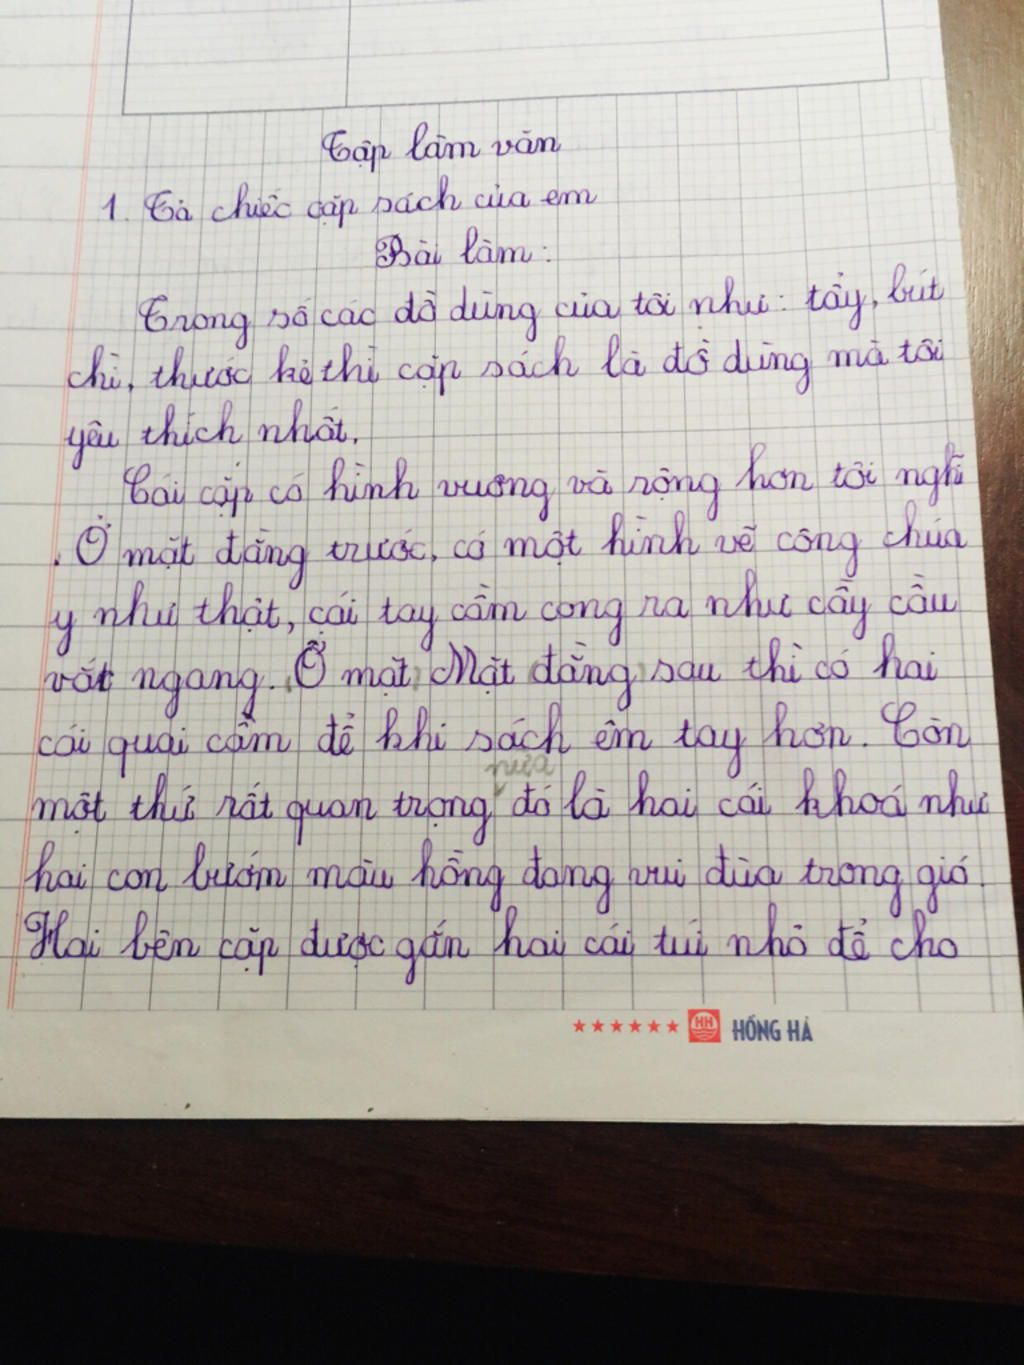 Tập làm văn
1. Tả chiếc cặp sách của em
Bài làm:
Trong số các đồ dùng của tôi như: tẩy, bút
chì, thước kẻ thì cặp sách là đồ dùng mà tôi
yêu thích nhất.
Cái cặp có hình vuông và rộng hơn tôi nghĩ
. Ở mặt đằng trước, có một hình vẽ công chúa
y như thật, cái tay cầm cong ra như cầy cầu
vắt ngang. Ở mặt Mặt đằng sau thì có hai
cái quai cầm để khi sách êm tay hơn. Còn
nữa
một thứ rất quan trọng đó là hai cái khoá như
hai con bướm màu hồng đang vui đùa trong gió.
Hai bên cặp được gắn hai cái túi nhỏ để cho
HH HỒNG HÀ